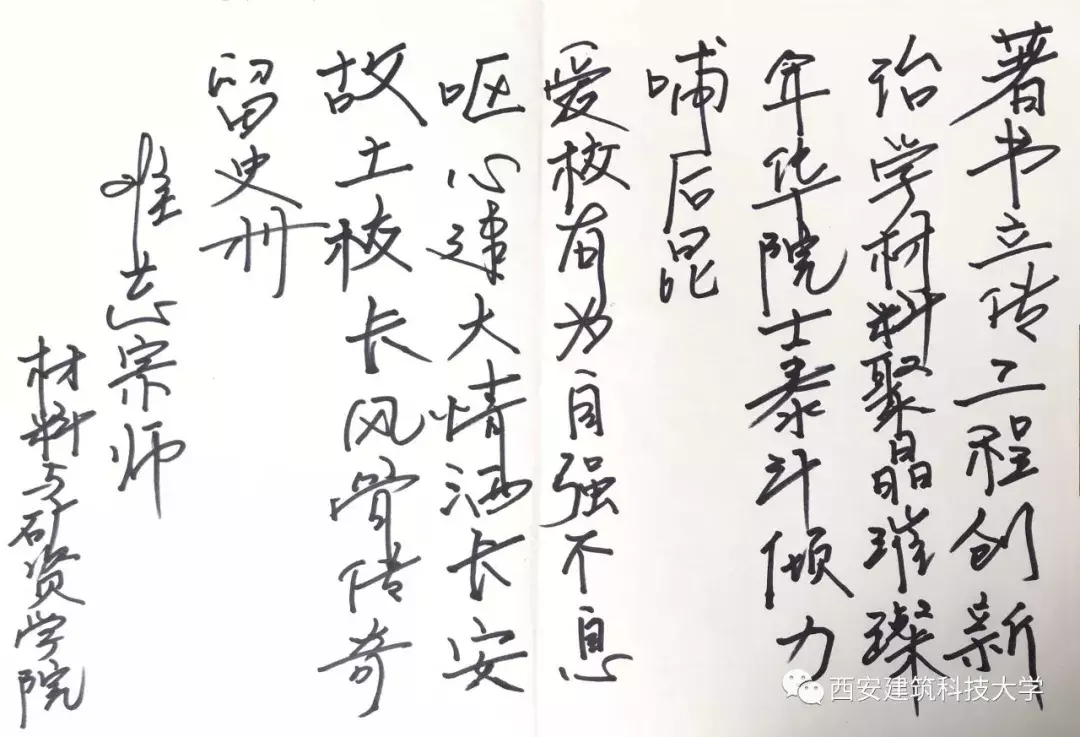 著书立传工程创新
治学材料聚晶璀璨
年华院士泰斗倾力
哺后昆
爱校有为自强不息
呕心建大情洒长安
故土校长风骨传奇
留史册
惟志宗师
材料与矿资学院
西安建筑科技大学